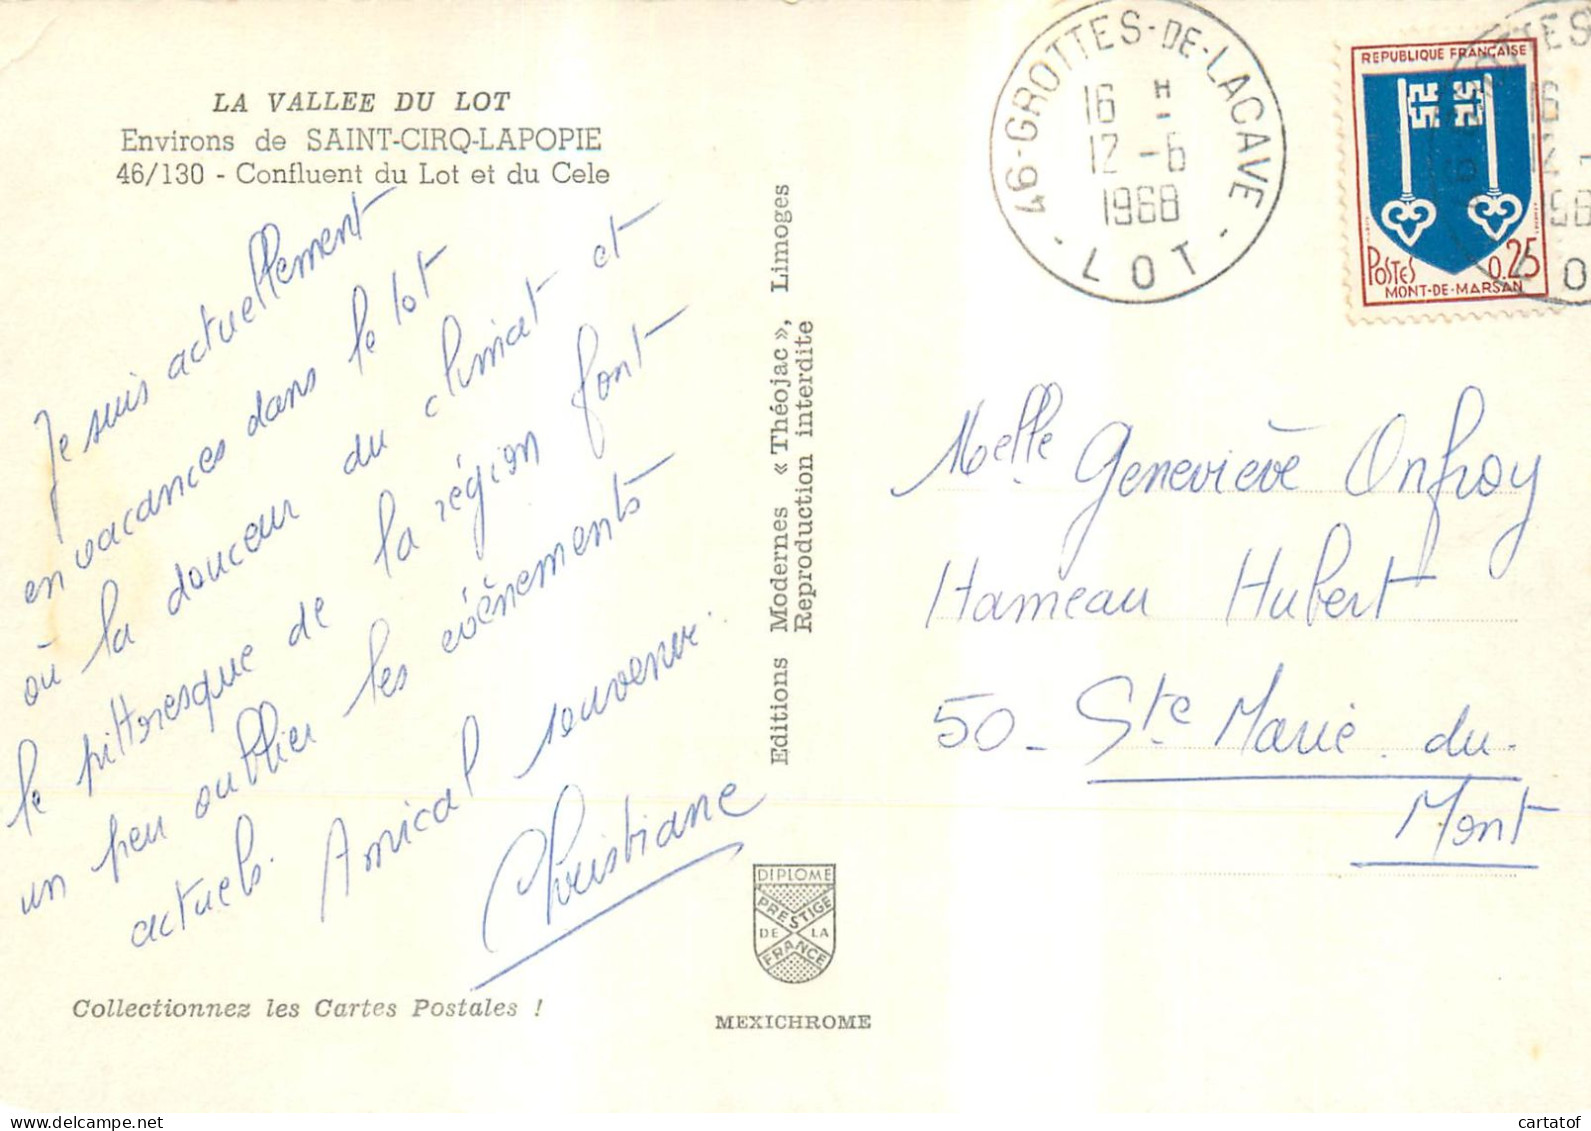 LA VALLEE DU LOT
Environs de SAINT-CIRQ-LAPOPIE
46/130 - Confluent du Lot et du Cele
Je suis actuellement
en vacances dans le lot
où la douceur du climat et
le pittoresque de la région font
un peu oublier les événements
actuels. Amical souvenir.
Christiane
Collectionnez les Cartes Postales !
Editions Modernes « Théojac », Limoges
Reproduction interdite
DIPLOME
PRESTIGE
DE LA
FRANCE
MEXICHROME
46-GROTTES-DE-LACAVE
16 H
12 -6
1968
- LOT -
REPUBLIQUE FRANÇAISE
POSTES 0.25
MONT-DE-MARSAN
OTTES
16
12 -
196
LO
Melle Geneviève Onfroy
Hameau Hubert
50 - Ste Marie du
Mont
delcampe.net
cartatof